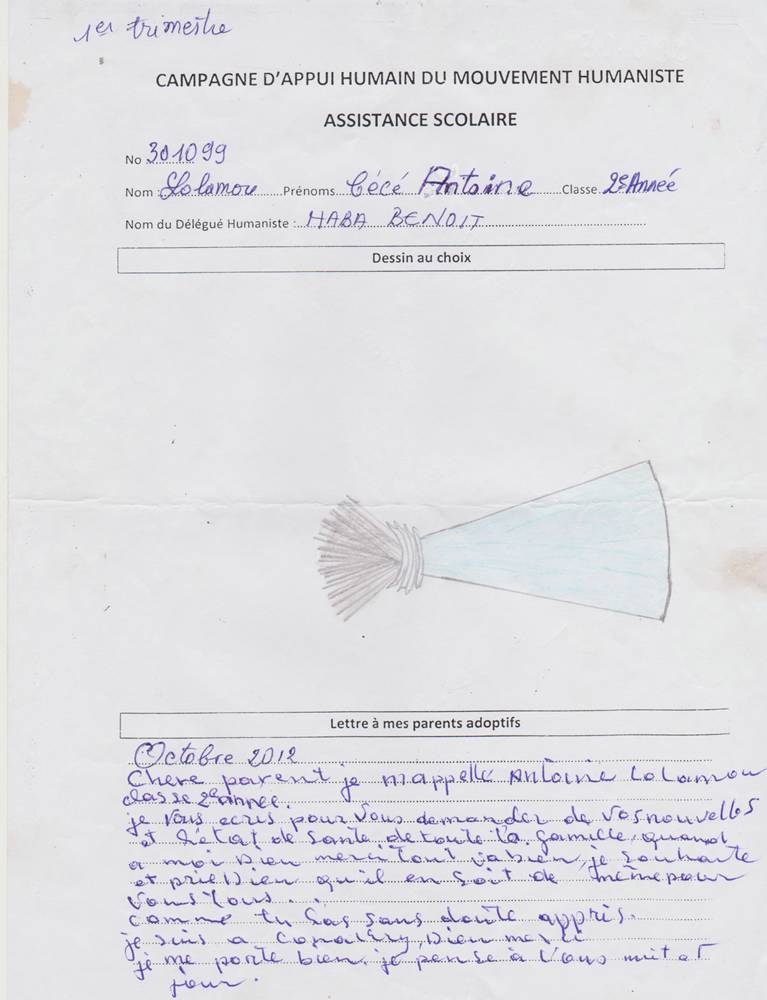 1er trimestre
CAMPAGNE D'APPUI HUMAIN DU MOUVEMENT HUMANISTE
ASSISTANCE SCOLAIRE
No 301099
Nom Lolamou Prénoms Cécé Antoine Classe 2e Année
Nom du Délégué Humaniste : HABA BENOIT
Dessin au choix
Lettre à mes parents adoptifs
Octobre 2012
Chere parent je m'appelle Antoine Lolamou
classe 2e année.
je vous ecris pour vous demander de vos nouvelles
et l'état de santé de toute la famille, quand
a moi Dien merci tout va bien, je souhaite
et prie Dien qu'il en soit de même pour
vous tous.
comme tu las sans doute appris.
je suis a Conakry, Dien merci
je me porte bien. je pense à vous nuit et
jour.